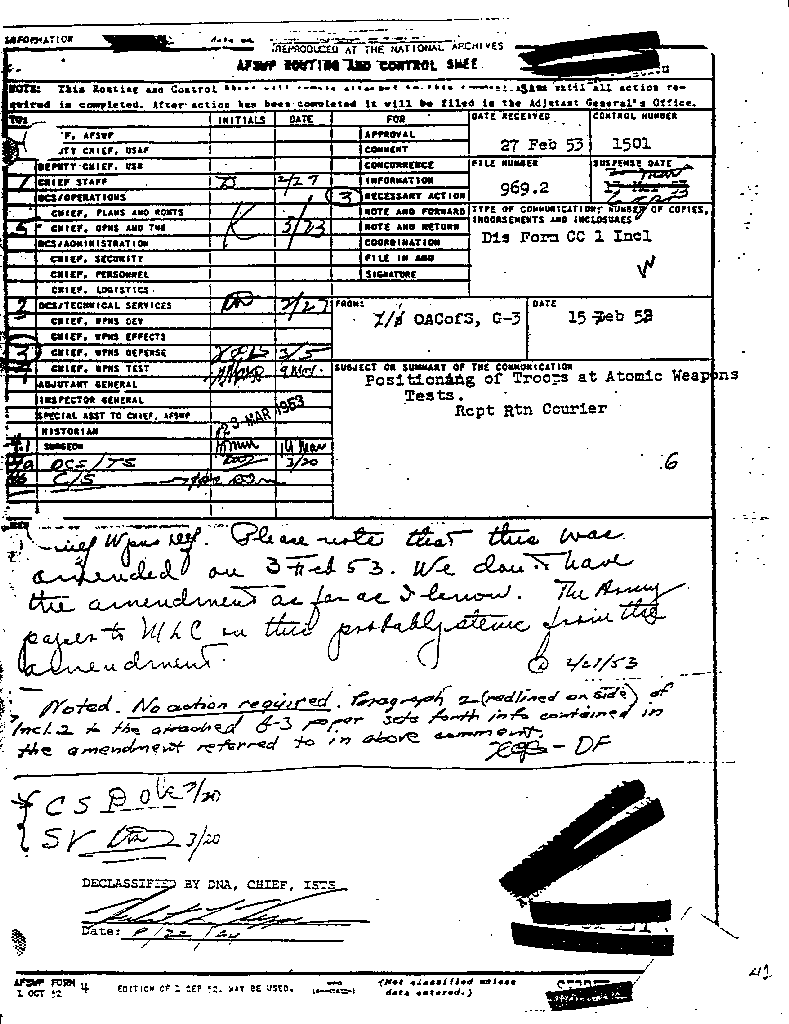 INFORMATION
REPRODUCED AT THE NATIONAL ARCHIVES
AFSWP ROUTING AND CONTROL SHEE
NOTE: This Routing and Control until all action re-
quired is completed. After action has been completed it will be filed in the Adjutant General's Office.
TO: INITIALS DATE FOR DATE RECEIVED CONTROL NUMBER
F, AFSWP APPROVAL 27 Feb 53 1501
TY CHIEF, USAF COMMENT
DEPUTY CHIEF, USN CONCURRENCE FILE NUMBER SUSPENSE DATE
1 CHIEF STAFF 2/27 INFORMATION 969.2
DCS/OPERATIONS 3 NECESSARY ACTION
CHIEF, PLANS AND RQMTS NOTE AND FORWARD TYPE OF COMMUNICATION; NUMBER OF COPIES,
5 CHIEF, OPNS AND TNG K 3/23 NOTE AND RETURN INDORSEMENTS AND INCLOSURES
DCS/ADMINISTRATION COORDINATION Dis Form CC 1 Incl
CHIEF, SECURITY FILE IN AND
CHIEF, PERSONNEL SIGNATURE
CHIEF, LOGISTICS
2 DCS/TECHNICAL SERVICES 2/27 FROM: DATE
CHIEF, WPNS DEV OACofS, G-3 15 Feb 53
CHIEF, WPNS EFFECTS
3 CHIEF, WPNS DEFENSE 3/5
CHIEF, WPNS TEST 9 Mar SUBJECT OR SUMMARY OF THE COMMUNICATION
ADJUTANT GENERAL Positioning of Troops at Atomic Weapons
INSPECTOR GENERAL Tests.
SPECIAL ASST TO CHIEF, AFSWP 23 MAR 1953 Rcpt Rtn Courier
HISTORIAN
SURGEON 14 Mar
DCS/TS 3/20 6
C/S
Chief Wpns Def. Please note that this was
amended on 3 Feb 53. We don't have
the amendment as far as I know. The Army
paper to MLC on this probably stems from this
amendment.
2/27/53
Noted. No action required. Paragraph 2 (redlined on side) of
Incl.2 to the attached G-3 paper sets forth info contained in
the amendment referred to in above comment.
- DF
CS 3/20
SV 3/20
DECLASSIFIED BY DNA, CHIEF, ISTS
Date:
AFSWP FORM 4 EDITION OF 2 SEP 52. MAY BE USED. (Not classified unless
1 OCT 52 data entered.)
41